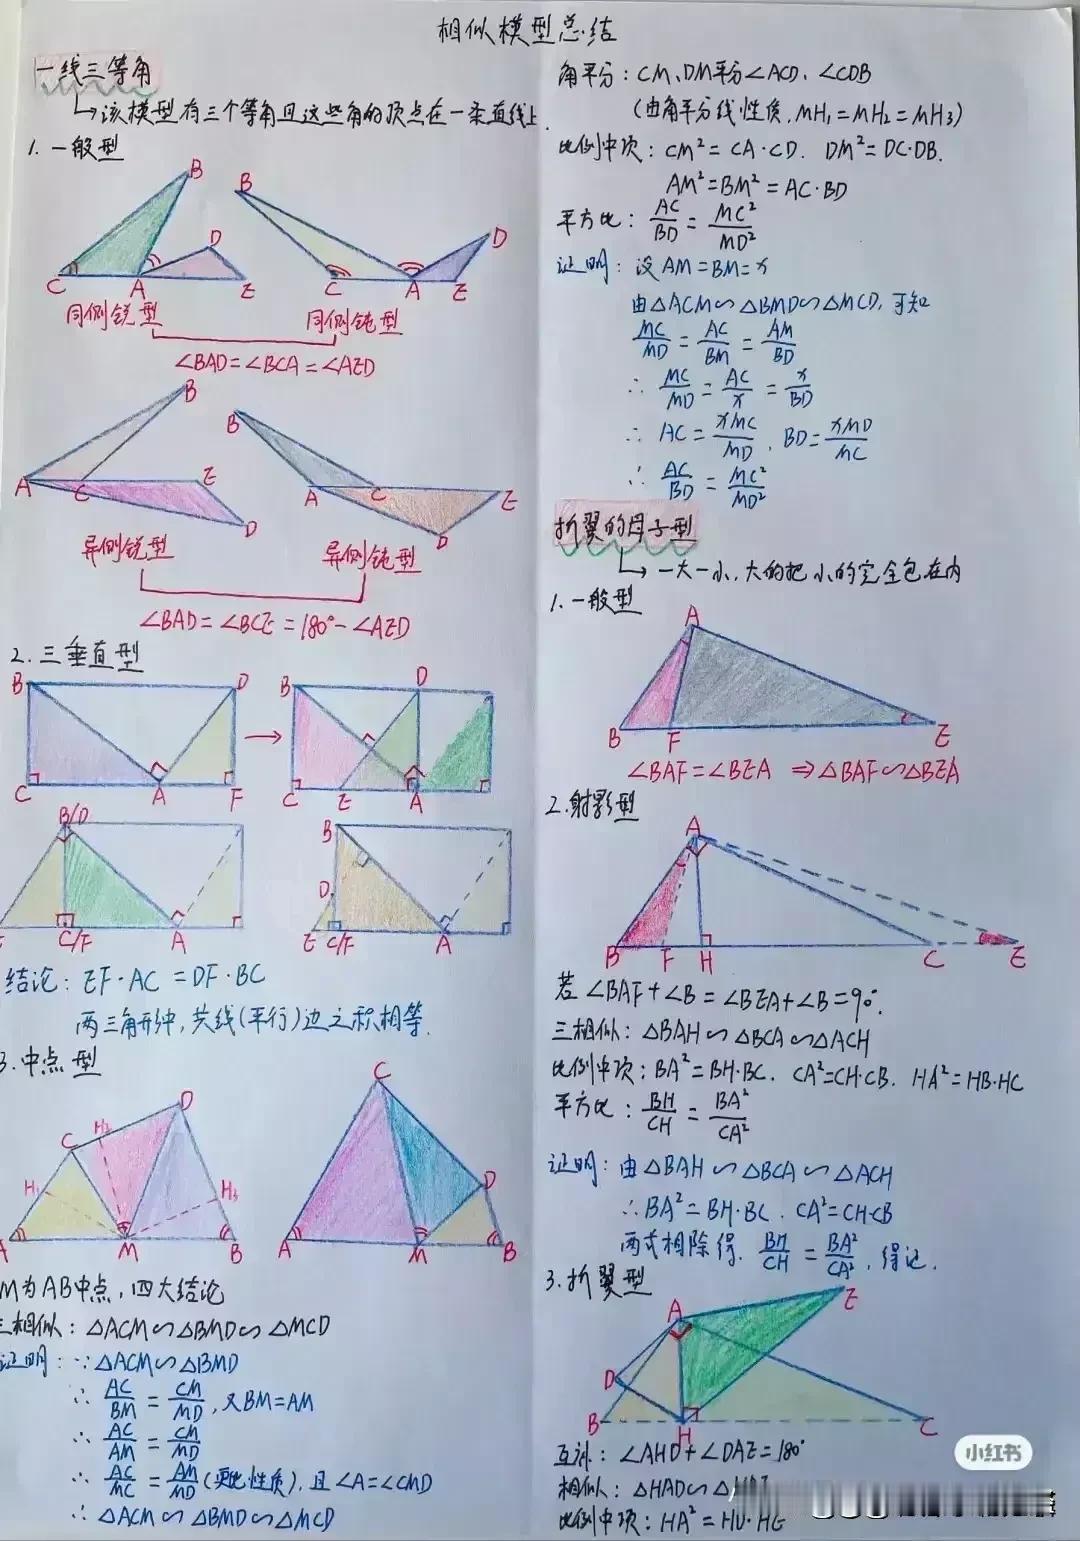 相似模型总结
一线三等角
→该模型有三个等角且这些角的顶点在一条直线上.
1. 一般型
B
B
D
D
C
A
E
C
A
E
同侧锐型
同侧钝型
∠BAD=∠BCA=∠AED
B
B
A
C
E
D
A
C
E
D
异侧锐型
异侧钝型
∠BAD=∠BCE=180°-∠AED
2. 三垂直型
B
D
C
A
F
→
B
D
C
E
A
B/D
C/F
A
B
D
E
C/F
A
结论: EF·AC=DF·BC
两三角形中, 共线(平行)边之积相等.
3. 中点型
C
H₂
D
H₁
H₃
A
M
B
C
D
A
M
B
M为AB中点, 四大结论
三相似: △ACM∽△BMD∽△MCD
证明: ∵△ACM∽△BMD
∴ AC/BM = CM/MD, 又BM=AM
∴ AC/AM = CM/MD
∴ AC/MC = AM/MD (更比性质), 且∠A=∠CMD
∴ △ACM∽△BMD∽△MCD
角平分: CM、DM平分∠ACD、∠CDB
(由角平分线性质, MH₁=MH₂=MH₃)
比例中项: CM²=CA·CD. DM²=DC·DB.
AM²=BM²=AC·BD
平方比: AC/BD = MC²/MD²
证明: 设AM=BM=x
由△ACM∽△BMD∽△MCD, 可知
MC/MD = AC/BM = AM/BD
∴ MC/MD = AC/x = x/BD
∴ AC = xMC/MD, BD = xMD/MC
∴ AC/BD = MC²/MD²
折翼的母子型
→一大一小, 大的把小的完全包在内
1. 一般型
A
B
F
E
∠BAF=∠BEA ⇒△BAF∽△BEA
2. 射影型
A
B
F
H
C
E
若∠BAF+∠B=∠BEA+∠B=90°.
三相似: △BAH∽△BCA∽△ACH
比例中项: BA²=BH·BC. CA²=CH·CB. HA²=HB·HC
平方比: BH/CH = BA²/CA²
证明: 由△BAH∽△BCA∽△ACH
∴BA²=BH·BC. CA²=CH·CB
两式相除得. BH/CH = BA²/CA², 得证.
3. 折翼型
A
E
D
B
H
C
互补: ∠AHD+∠DAE=180°
相似: △HAD∽△
比例中项: HA²=HD·HE
小红书